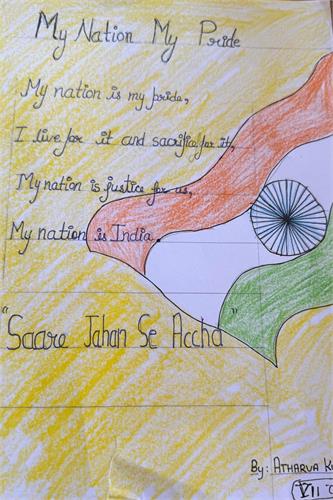 My Nation My Pride
My nation is my pride,
I live for it and sacrifice for it,
My nation is justice for us,
My nation is India.
"Saare Jahan Se Accha"
By: ATHARVA
VII